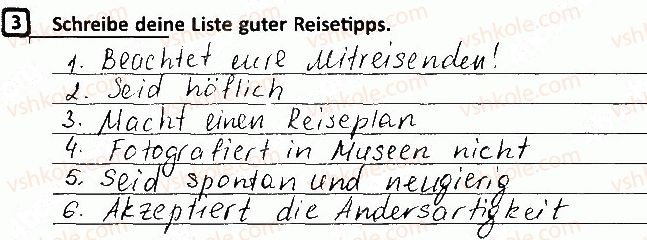 3 Schreibe deine Liste guter Reisetipps.
1. Beachtet eure Mitreisenden!
2. Seid höflich
3. Macht einen Reiseplan
4. Fotografiert in Museen nicht
5. Seid spontan und neugierig
6. Akzeptiert die Andersartigkeit
vshkole.com